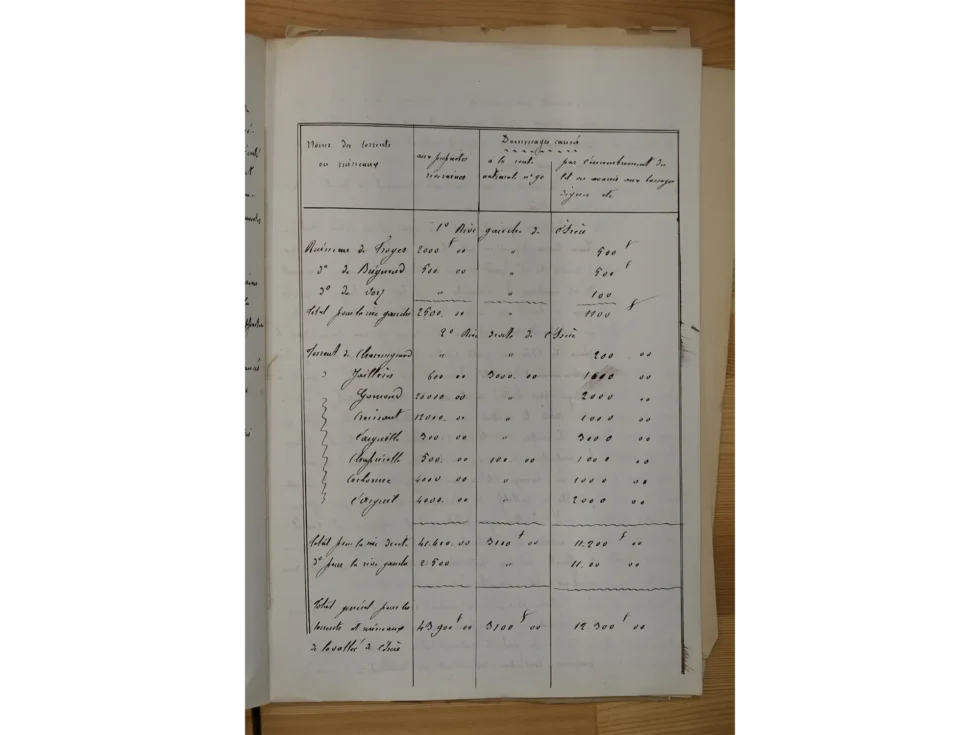 Noms des torrents
ou ruisseaux
aux propriétés
riveraines
Dommages causés
à la route
nationale n° 90
par l'encombrement du
lit ou avaries aux barrages
digues etc
1° Rive gauche de l'Isère
Ruisseau de Froges 2000 f 00 " 500 f
d° de Brignoud 500. 00 " 500 f
d° de " " 100
Total pour la rive gauche 2500. 00 " 1100 f
2° Rive droite de l'Isère
Torrent de " " 200 00
" 600 00 3000. 00 1000 00
20000. 00 " 2000 00
12000. 00 " 1000 00
300. 00 " 3000 00
500. 00 100. 00 1000 00
Carbonne 4000 00 " 1000 00
4000. 00 " 2000 00
Total pour la rive droite 41.400. 00 3100 f 00 11.200 f 00
d° pour la rive gauche 2.500 " 11.00 00
Total général pour les
torrents et ruisseaux 43.900 f 00 3100 f 00 12.300 f 00
de la vallée de l'Isère